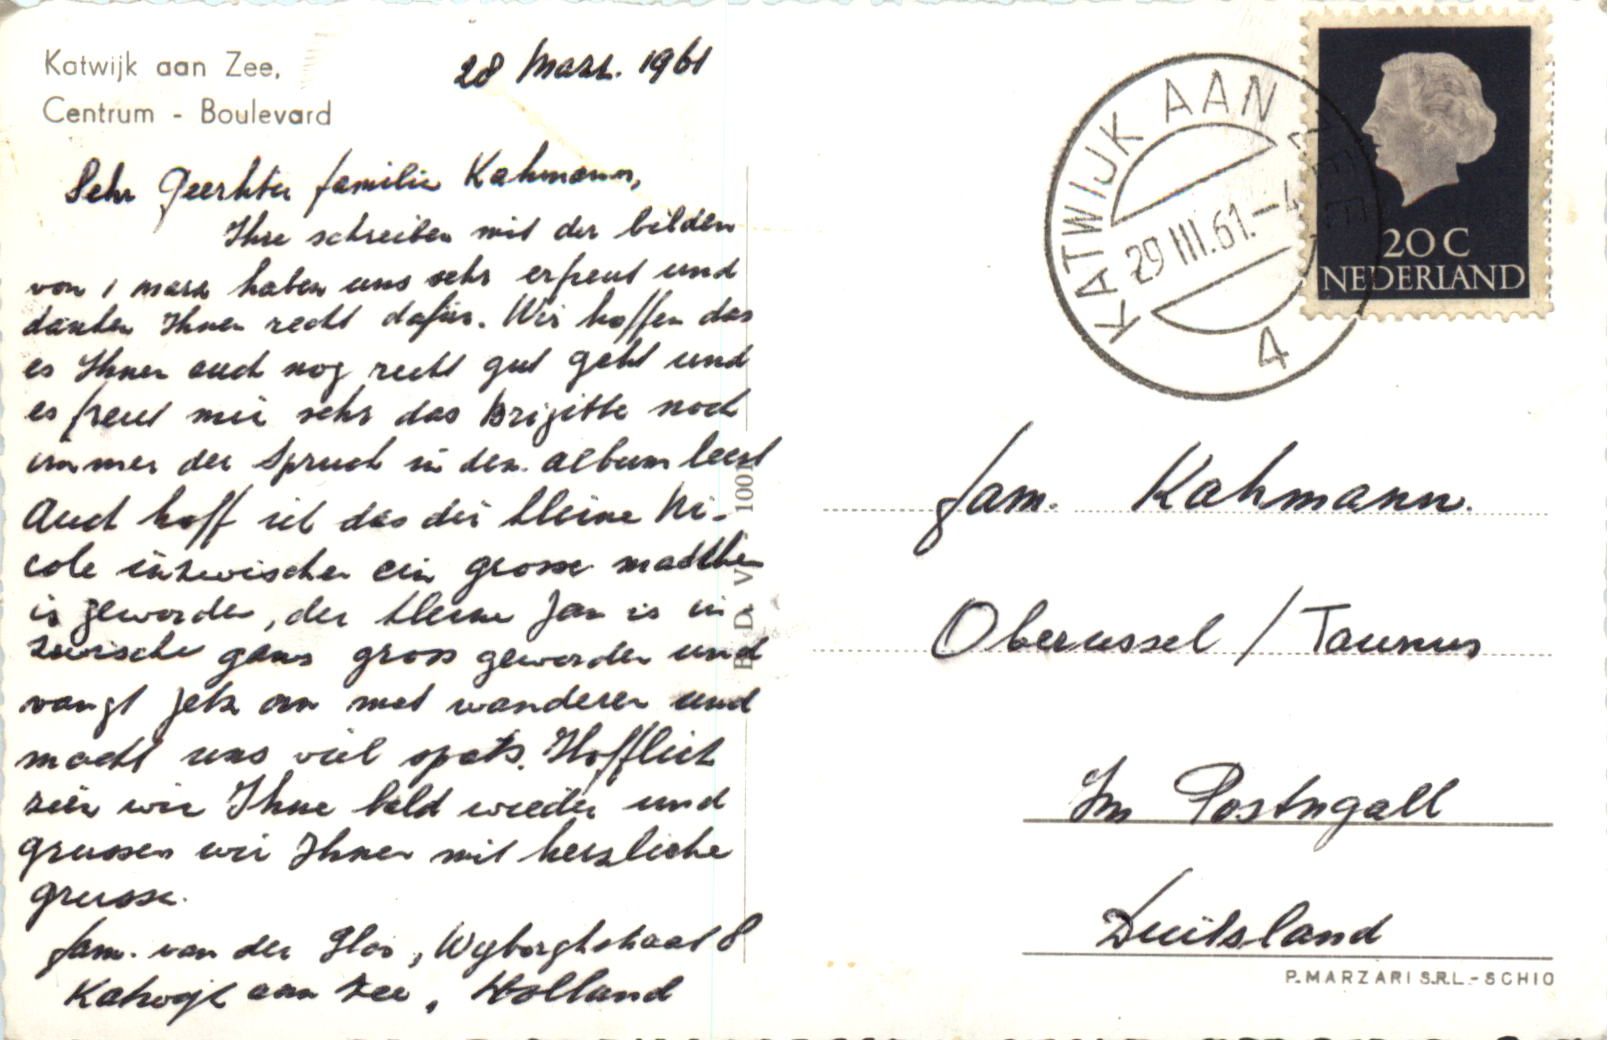 Katwijk aan Zee,
Centrum - Boulevard
28 Marz. 1961
Sehr Geerhter familie Kahmann,
Ihre schreiben mit der bilden
von 1 marz haben uns sehr erfreut und
danken Ihnen recht dafür. Wir hoffen das
es Ihnen auch nog recht gut geht und
es freut mir sehr das Brigitte noch
immer der Spruch in den album leest
Auch hoff ich das die kleine Ni-
cole inzwischen ein grosse madchen
is geworden, der kleine Jan is in
zwische gans gross geworden und
vangt jetz an met wanderen und
macht uns viel spats. Hofflich
zien wir Ihne bald wieder und
grussen wir Ihnen mit herzliche
grusse.
fam. van der , 8
Katwijk aan Zee, Holland
KATWIJK AAN ZEE
29 III.61.-4
4
20 C
NEDERLAND
fam. Kahmann.
Oberussel / Taunus
Im Postngall
Duitsland
P. MARZARI S.R.L. - SCHIO